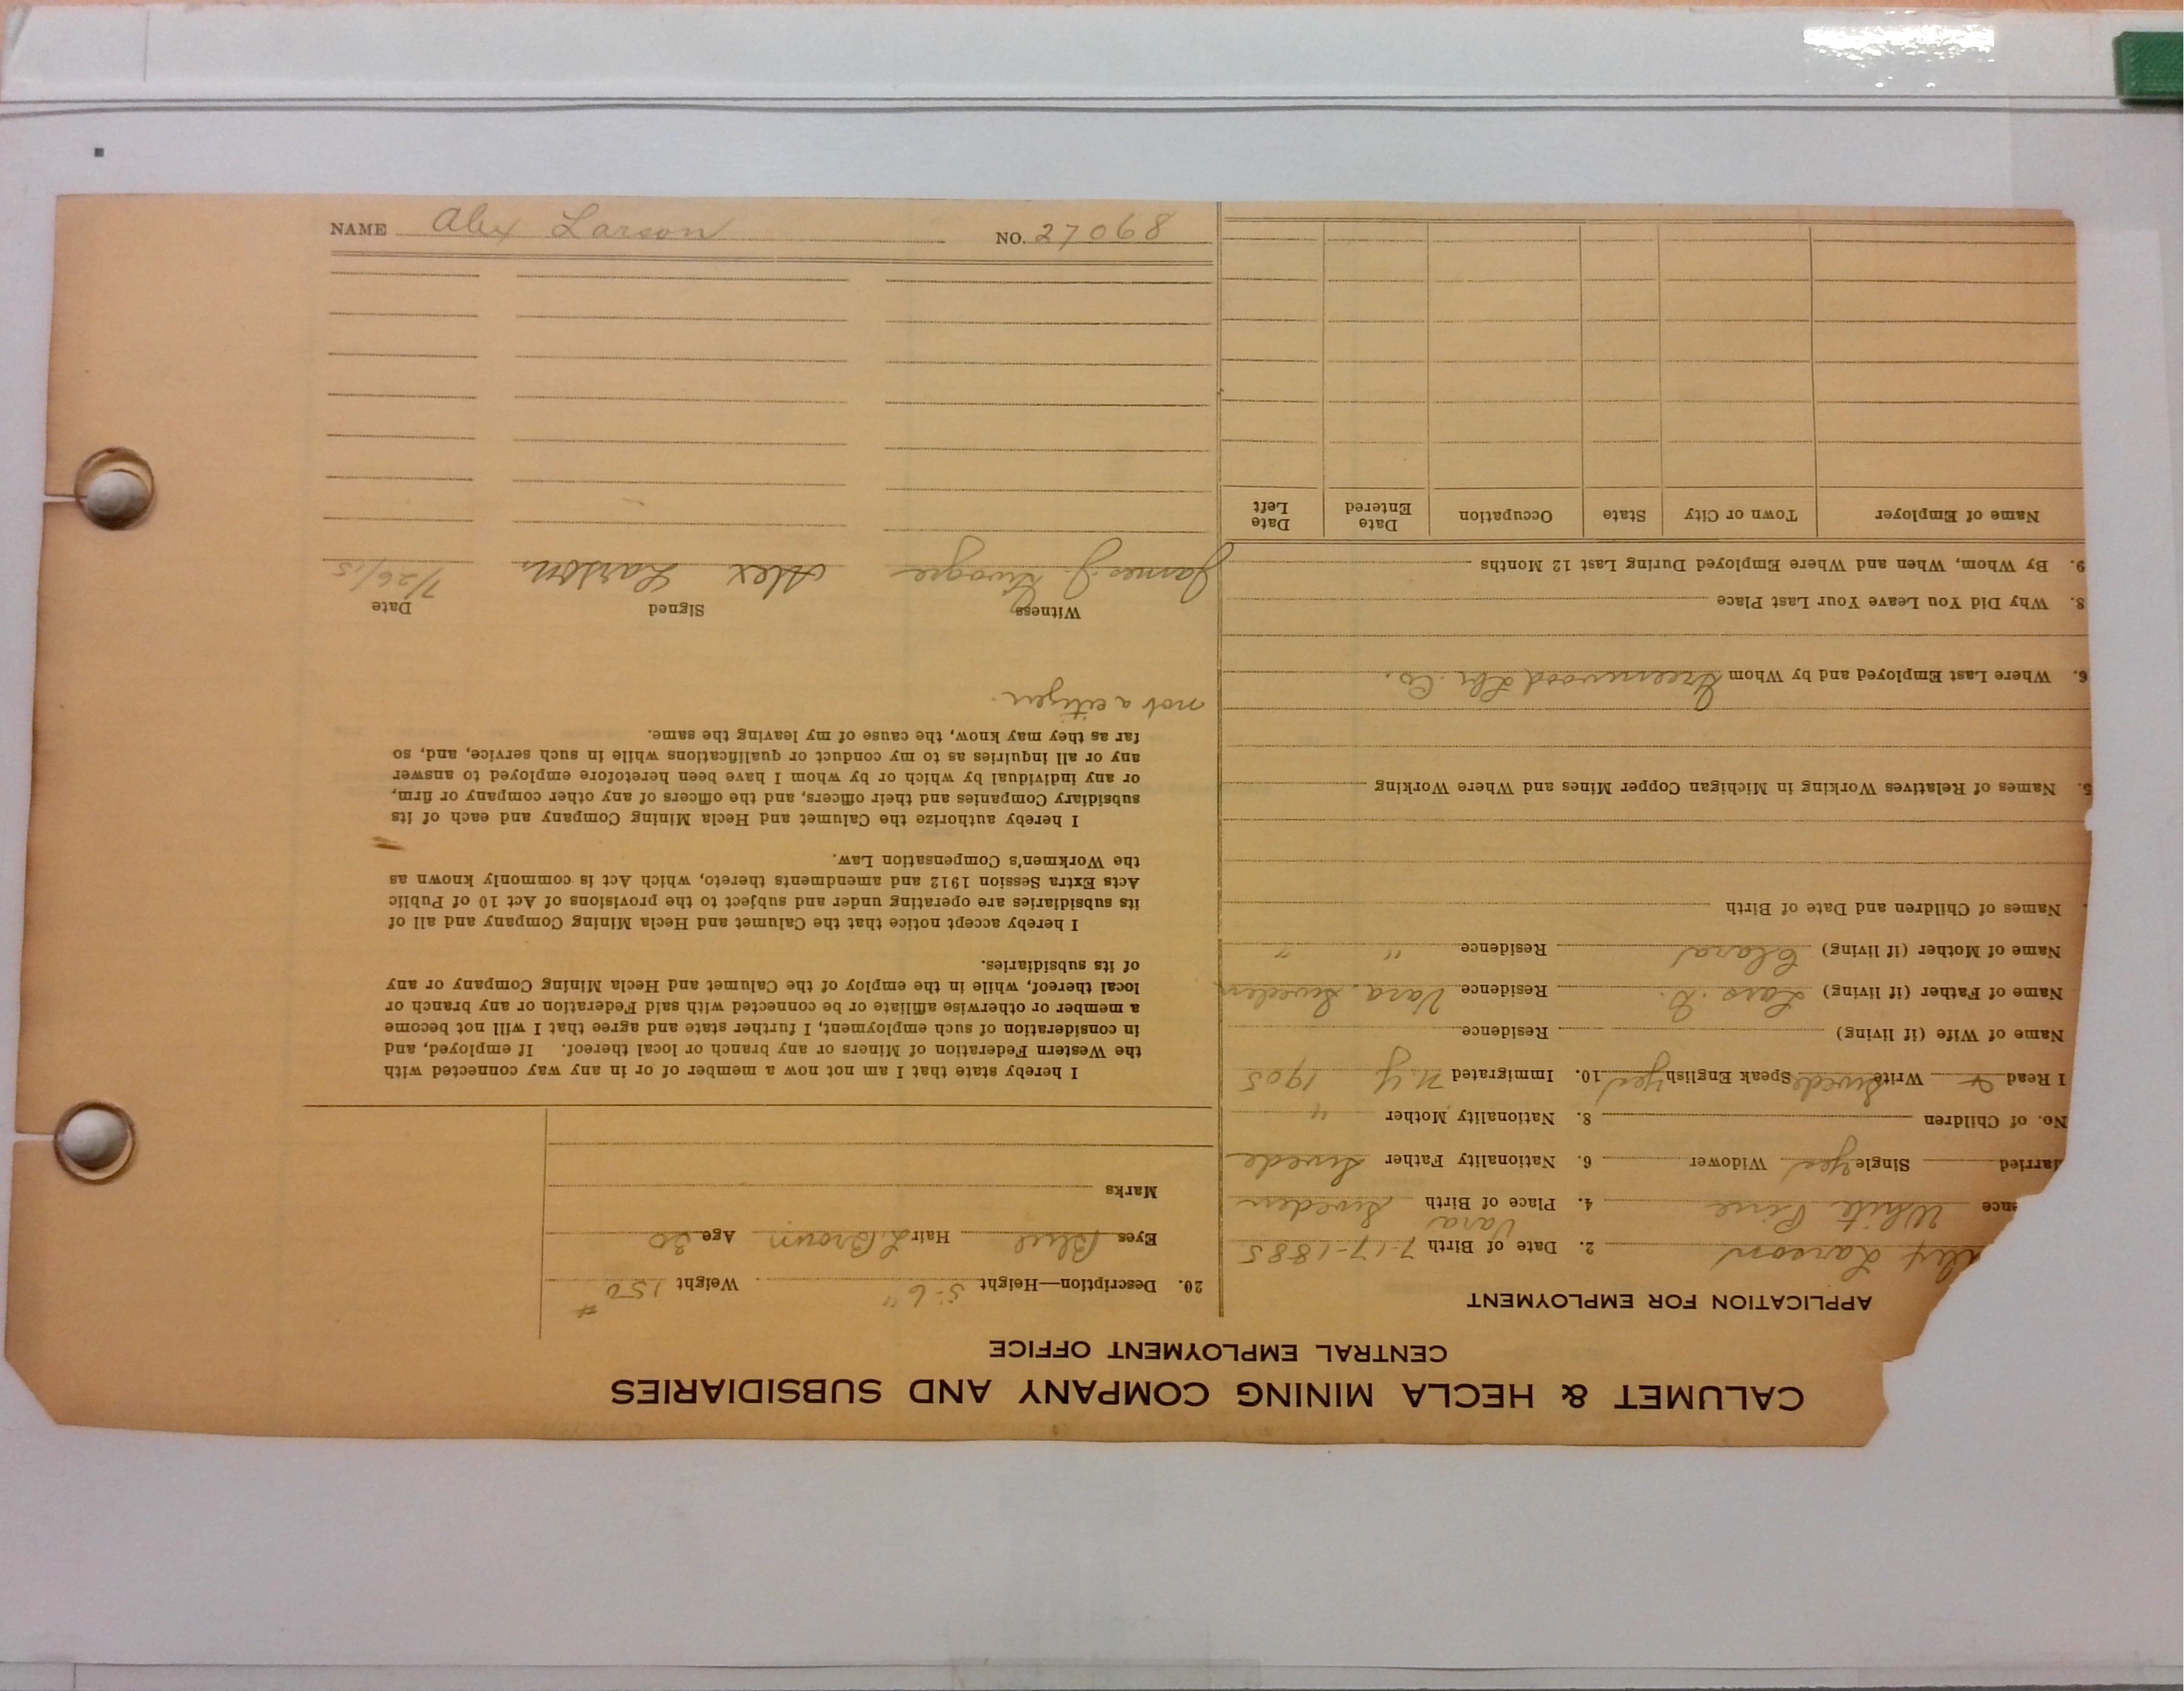 CALUMET & HECLA MINING COMPANY AND SUBSIDIARIES
CENTRAL EMPLOYMENT OFFICE
APPLICATION FOR EMPLOYMENT
Alex Larson 2. Date of Birth 7-17-1885
ence White Pine 4. Place of Birth Vara Sweden
arried Single Yes Widower 6. Nationality Father Swede
No. of Children 8. Nationality Mother "
I Read & Write Swede Speak English Yes 10. Immigrated N.Y. 1905
Name of Wife (if living) Residence
Name of Father (if living) Lars. Residence Vara. Sweden
Name of Mother (if living) Clara Residence " "
Names of Children and Date of Birth
5. Names of Relatives Working in Michigan Copper Mines and Where Working
6. Where Last Employed and by Whom Greenwood Lbr. Co.
8. Why Did You Leave Your Last Place
9. By Whom, When and Where Employed During Last 12 Months
Name of Employer Town or City State Occupation Date Entered Date Left
20. Description—Height 5-6" Weight 150 #
Eyes Blue Hair L. Brown Age 30
Marks
I hereby state that I am not now a member of or in any way connected with
the Western Federation of Miners or any branch or local thereof. If employed, and
in consideration of such employment, I further state and agree that I will not become
a member or otherwise affiliate or be connected with said Federation or any branch or
local thereof, while in the employ of the Calumet and Hecla Mining Company or any
of its subsidiaries.
I hereby accept notice that the Calumet and Hecla Mining Company and all of
its subsidiaries are operating under and subject to the provisions of Act 10 of Public
Acts Extra Session 1912 and amendments thereto, which Act is commonly known as
the Workmen's Compensation Law.
I hereby authorize the Calumet and Hecla Mining Company and each of its
subsidiary Companies and their officers, and the officers of any other company or firm,
or any individual by which or by whom I have been heretofore employed to answer
any or all inquiries as to my conduct or qualifications while in such service, and, so
far as they may know, the cause of my leaving the same.
not a citizen.
Witness Signed Date
James J. Alex Larson 7/26/15
NAME Alex Larson NO. 27068